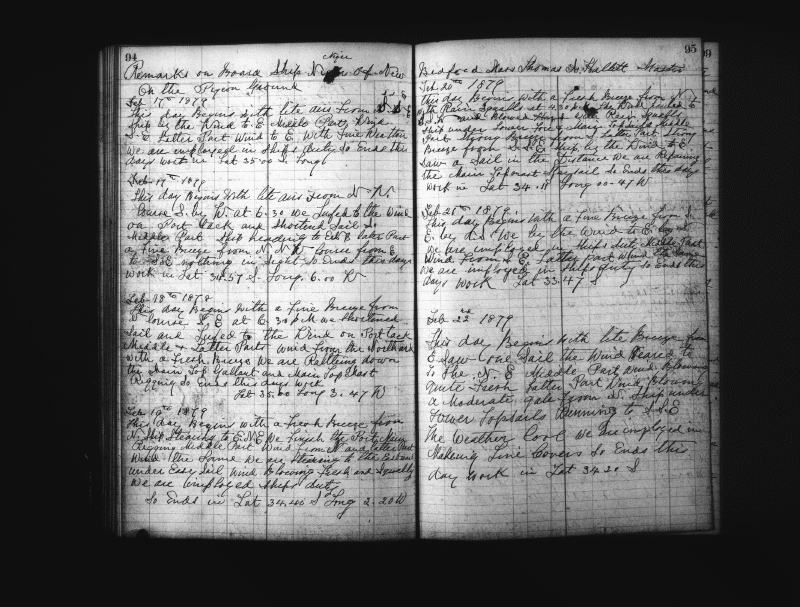 94
Niger
Remarks on Board Ship Niger of New
On the Pigeon Ground
Feb 17th 1879
This day Begins with lite airs from
Ship by the Wind to E Middle Part Wind
S.E. Latter Part Wind to E. With Fine Weather
We are employed in ships duty So Ends this
days work in Lat 35.00 S. Long
Feb 17th 1879
This day Begins With lite airs from N. W.
Course S. by W. at 6.30 We Luffed to the Wind
on Port tack and Shortend Sail So
Middle Part Ship heading to E.N.E. Later Part
a Fine Breeze from N.N.W. Course from E.
to S.E. nothing in Sight So Ends this days
work in Lat 34.57 S. Long. 6.00 W
Feb 18th 1879
This day Begins With a Fine Breeze from
W course S,E at 6.30 P.M We shortened
Sail and Luffed to the Wind on Port tack
Middle & Latter Part wind from the Northard
with a Fresh Breeze We are Rattling down
the Main Top Gallant and Main Top Mast
Rigging So Ends this days Work
Lat 35.00 Long 3.47 W
Feb 19th 1879
This day Begins with a Fresh Breeze from
N. Ship Stearing to E.N.E We Finish the Port Main
Rigging Middle Part Wind From N and Latter Part
Wind the Same We are Stearing to the Eastward
under Easy Sail Wind Blowing Fresh and Squally
We are employed Ships duty
So Ends in Lat 34.40 S Long 2.20 W
95
Bedford Mass Thomas Hallett Master
Feb 20th 1879
This day Begins With a Fine Breeze from N.
With Rain Squalls at 4.30 P.M the Wind hauled to
S.W. and Blowed Hard with Rain Squalls
Ship under Lower Topsails Middle
Part Strong Breeze from Latter Part Strong
Breeze from S.S.E Ship by the Wind to E.
Saw a Sail in the Distance We are Repairing
the Main Topmast Staysail So Ends this days
work in Lat 34.18 Long 00-47 W
Feb 21st 1879
This day Begins With a Fine Breeze from S.
E. by S. We by the Wind to E by
We are employed in Ships duty Middle Part
Wind From S E Latter Part Wind the Same
We are employed in Ships duty So Ends this
days Work Lat 33.47 S
Feb 22nd 1879
This day Begins With lite Breeze from
E Saw one Sail the Wind Veared to
to the N. E Middle Part wind Blowing
quite Fresh Latter Part Wind Blowing
a Moderate gale from N. Ship under
Lower Topsails Running to S.S.E
The Weather Cool We are employed in
Making Line Covers So Ends this
day work in Lat 34 20 S